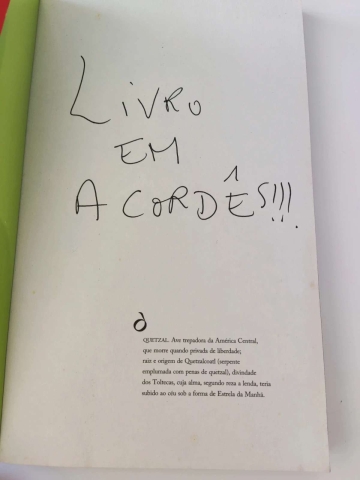 LIVRO
EM
ACORDÊS!!!
QUETZAL. Ave trepadora da América Central,
que morre quando privada de liberdade;
raiz e origem de Quetzalcoatl (serpente
emplumada com penas de quetzal), divindade
dos Toltecas, cuja alma, segundo reza a lenda, teria
subido ao céu sob a forma de Estrela da Manhã.